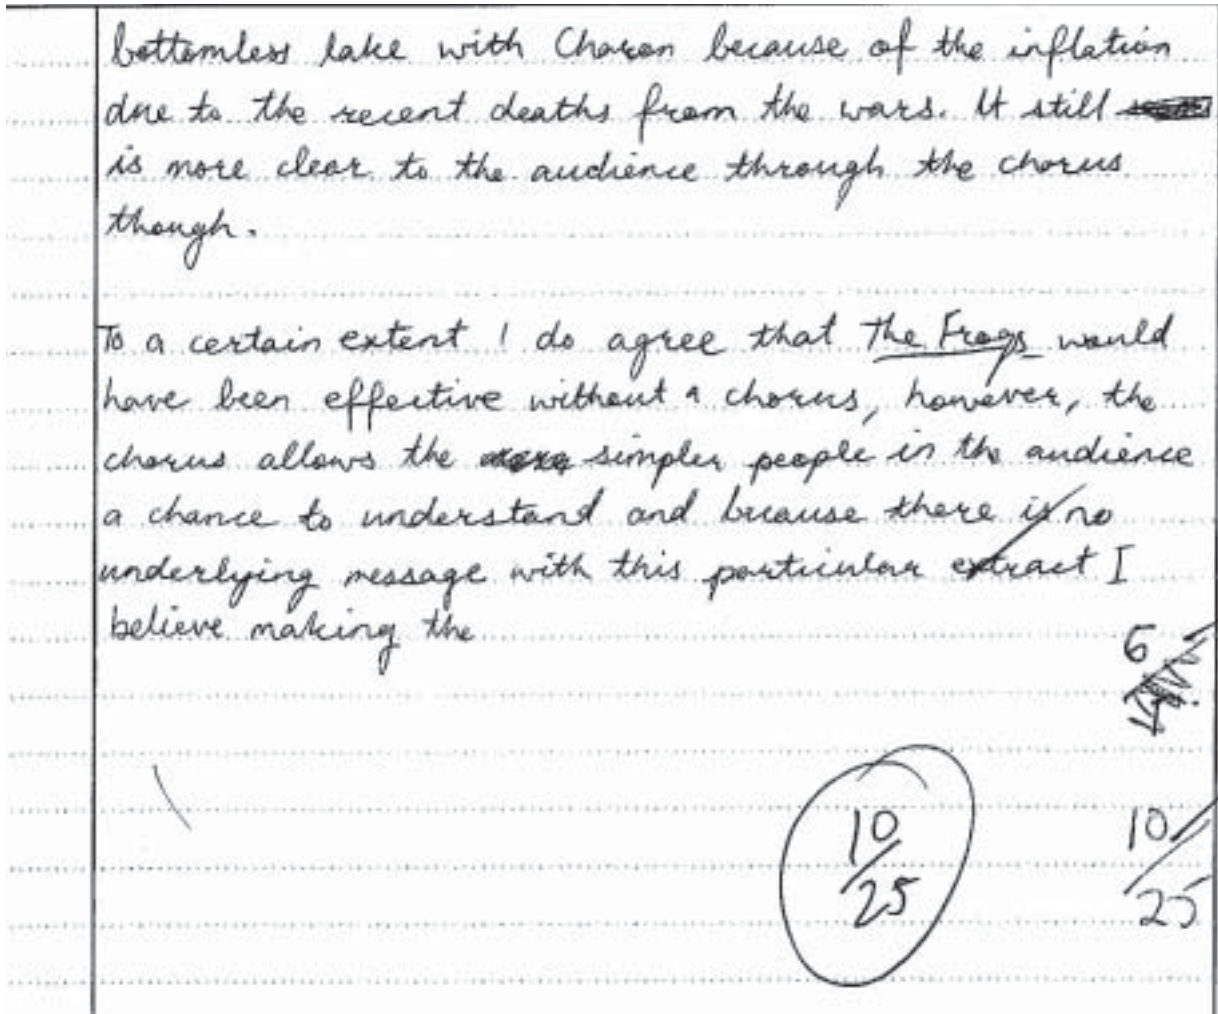 bottomless lake with Charon because of the inflation
due to the recent deaths from the wars. It still
is more clear to the audience through the chorus
though.
To a certain extent I do agree that The Frogs would
have been effective without a chorus, however, the
chorus allows the simpler people in the audience
a chance to understand and because there is no
underlying message with this particular extract I
believe making the
6
10
25
10
25